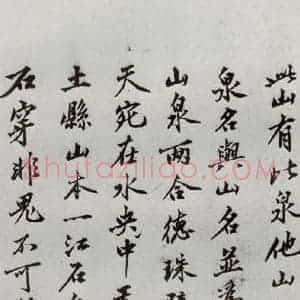 此山有此泉他山
泉名與山名並
山泉兩合德珠
天宛在水央中
土縣山本一江石
石穿非鬼不可
shufaziliao.com